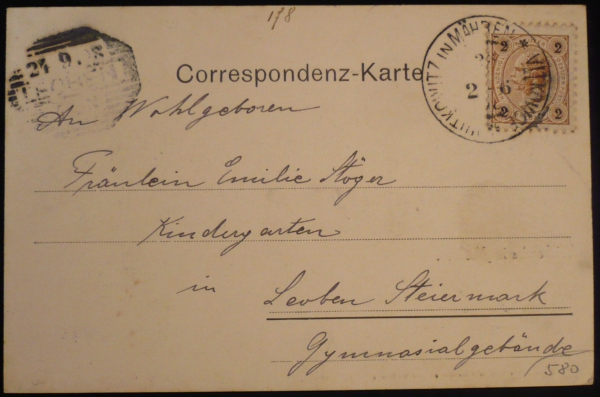 178
27 9
LEOBEN
WITKOWITZ IN MÄHREN *
2 6
2 2
2 2
Correspondenz-Karte
An Wohlgeboren
Fräulein Emilie Stöger
Kindergarten
in
Leoben Steiermark
Gymnasialgebäude
580